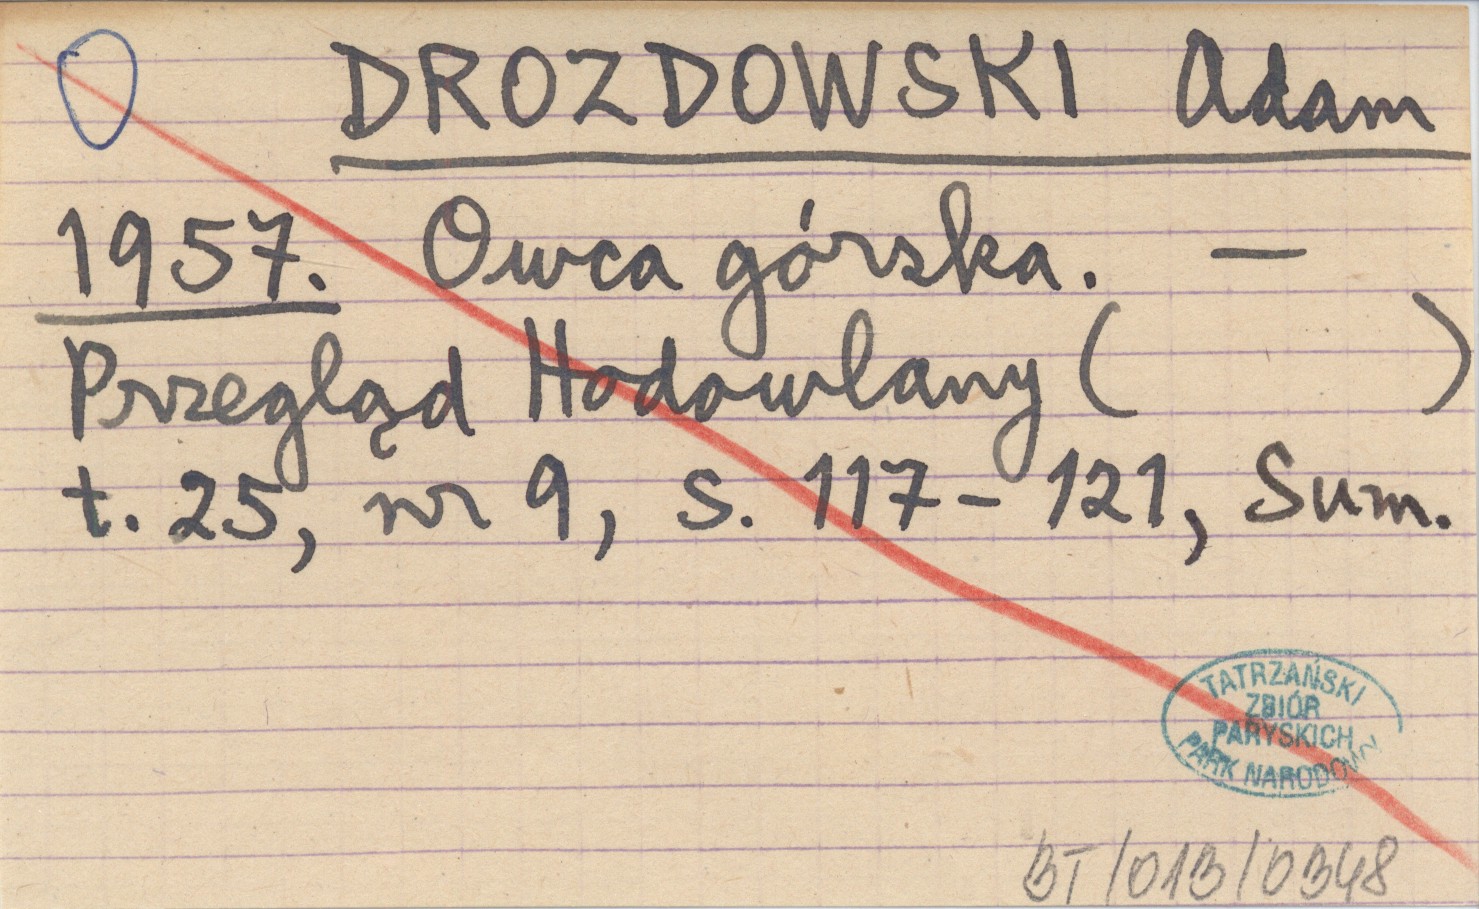 DROZDOWSKI Adam
1957. Owca górska. —
Przegląd Hodowlany ( )
t. 25, nr 9, s. 117-121, Sum.
TATRZAŃSKI
ZBIÓR
PARYSKICH
PARK NARODOWY
BT/013/0348